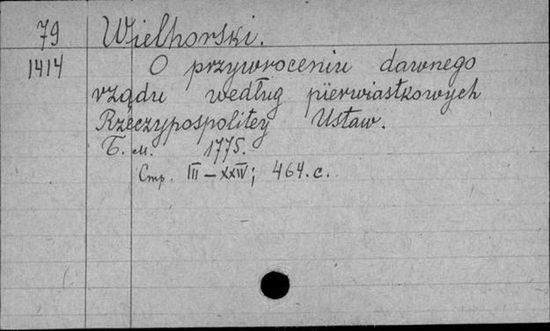 79 Wielhorski.
1414 O przywroceniu dawnego
rządu według pierwiastkowych
Rzeczypospolitey Ustaw.
Б. м. 1775.
Стр. III–XXIV; 464. с.